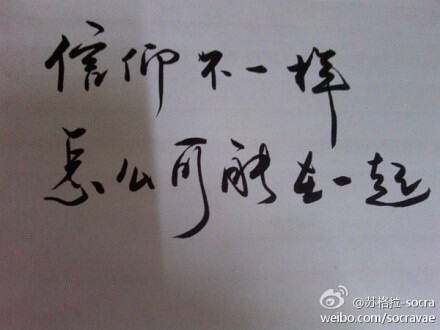 信仰不一样
怎么可能在一起
@苏格拉-socra
weibo.com/socravae